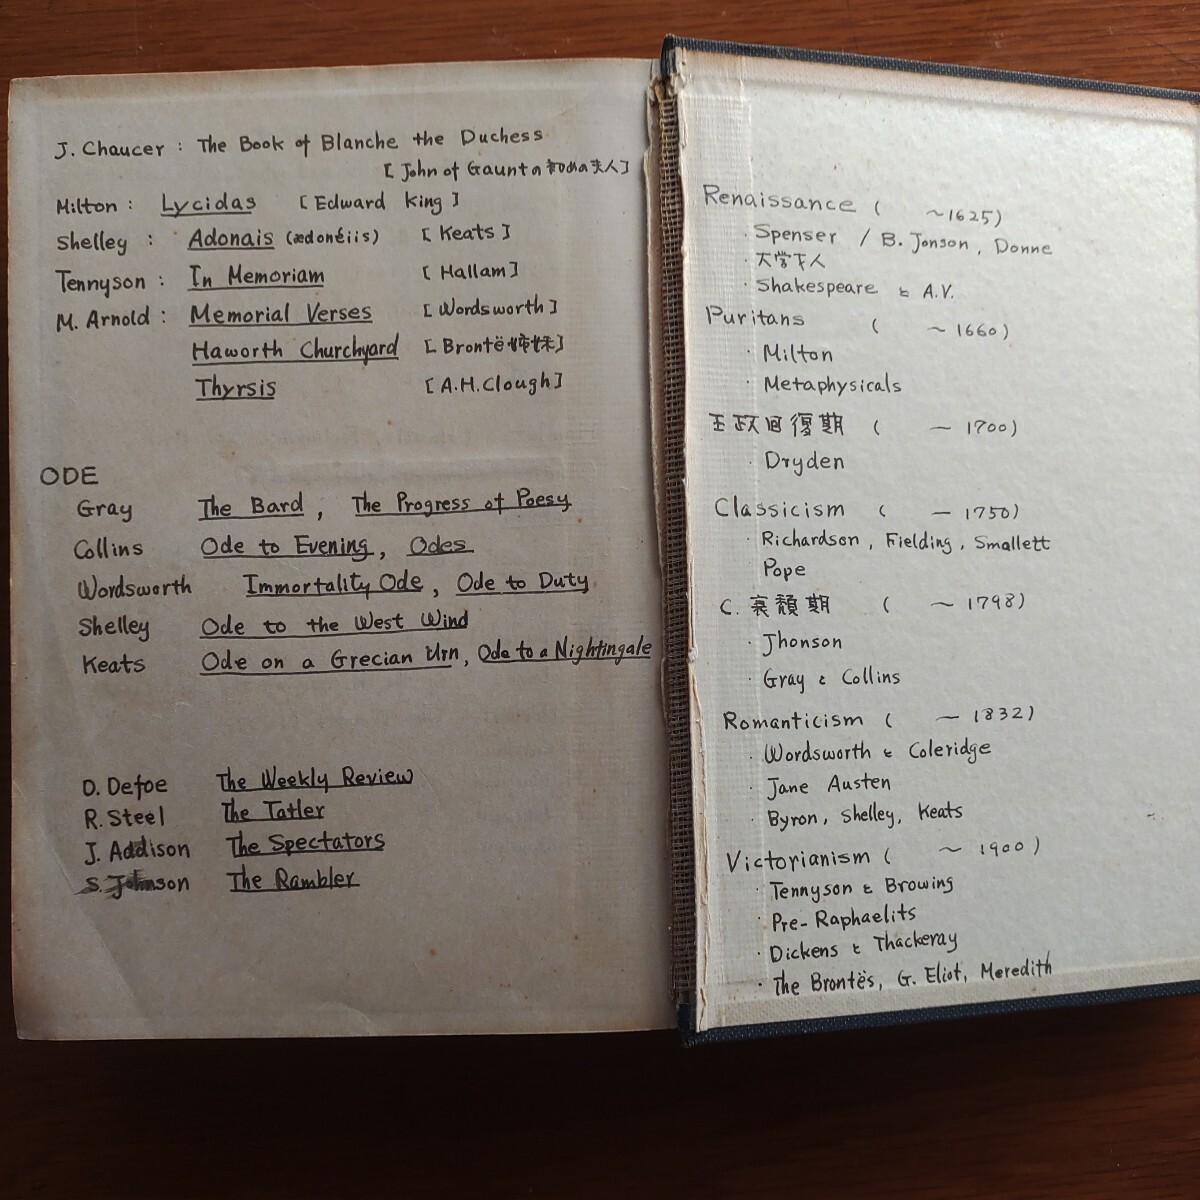 J. Chaucer : The Book of Blanche the Duchess
[ John of Gauntの初めの夫人 ]
Milton : Lycidas [ Edward King ]
Shelley : Adonais (ædonéiis) [ Keats ]
Tennyson : In Memoriam [ Hallam ]
M. Arnold : Memorial Verses [ Wordsworth ]
Haworth Churchyard [ Brontë姉妹 ]
Thyrsis [ A.H. Clough ]
ODE
Gray The Bard , The Progress of Poesy
Collins Ode to Evening , Odes
Wordsworth Immortality Ode , Ode to Duty
Shelley Ode to the West Wind
Keats Ode on a Grecian Urn , Ode to a Nightingale
D. Defoe The Weekly Review
R. Steel The Tatler
J. Addison The Spectators
S. Johnson The Rambler
Renaissance ( ~1625)
· Spenser / B. Jonson , Donne
· 大学才人
· Shakespeare と A.V.
Puritans ( ~1660)
· Milton
· Metaphysicals
王政回復期 ( ~ 1700)
· Dryden
Classicism ( ~ 1750)
· Richardson , Fielding , Smallett
Pope
C. 衰頽期 ( ~ 1798)
· Jhonson
· Gray と Collins
Romanticism ( ~ 1832)
· Wordsworth と Coleridge
· Jane Austen
· Byron, Shelley, Keats
Victorianism ( ~ 1900 )
· Tennyson と Browing
· Pre-Raphaelits
· Dickens と Thackeray
· The Brontës, G. Eliot, Meredith